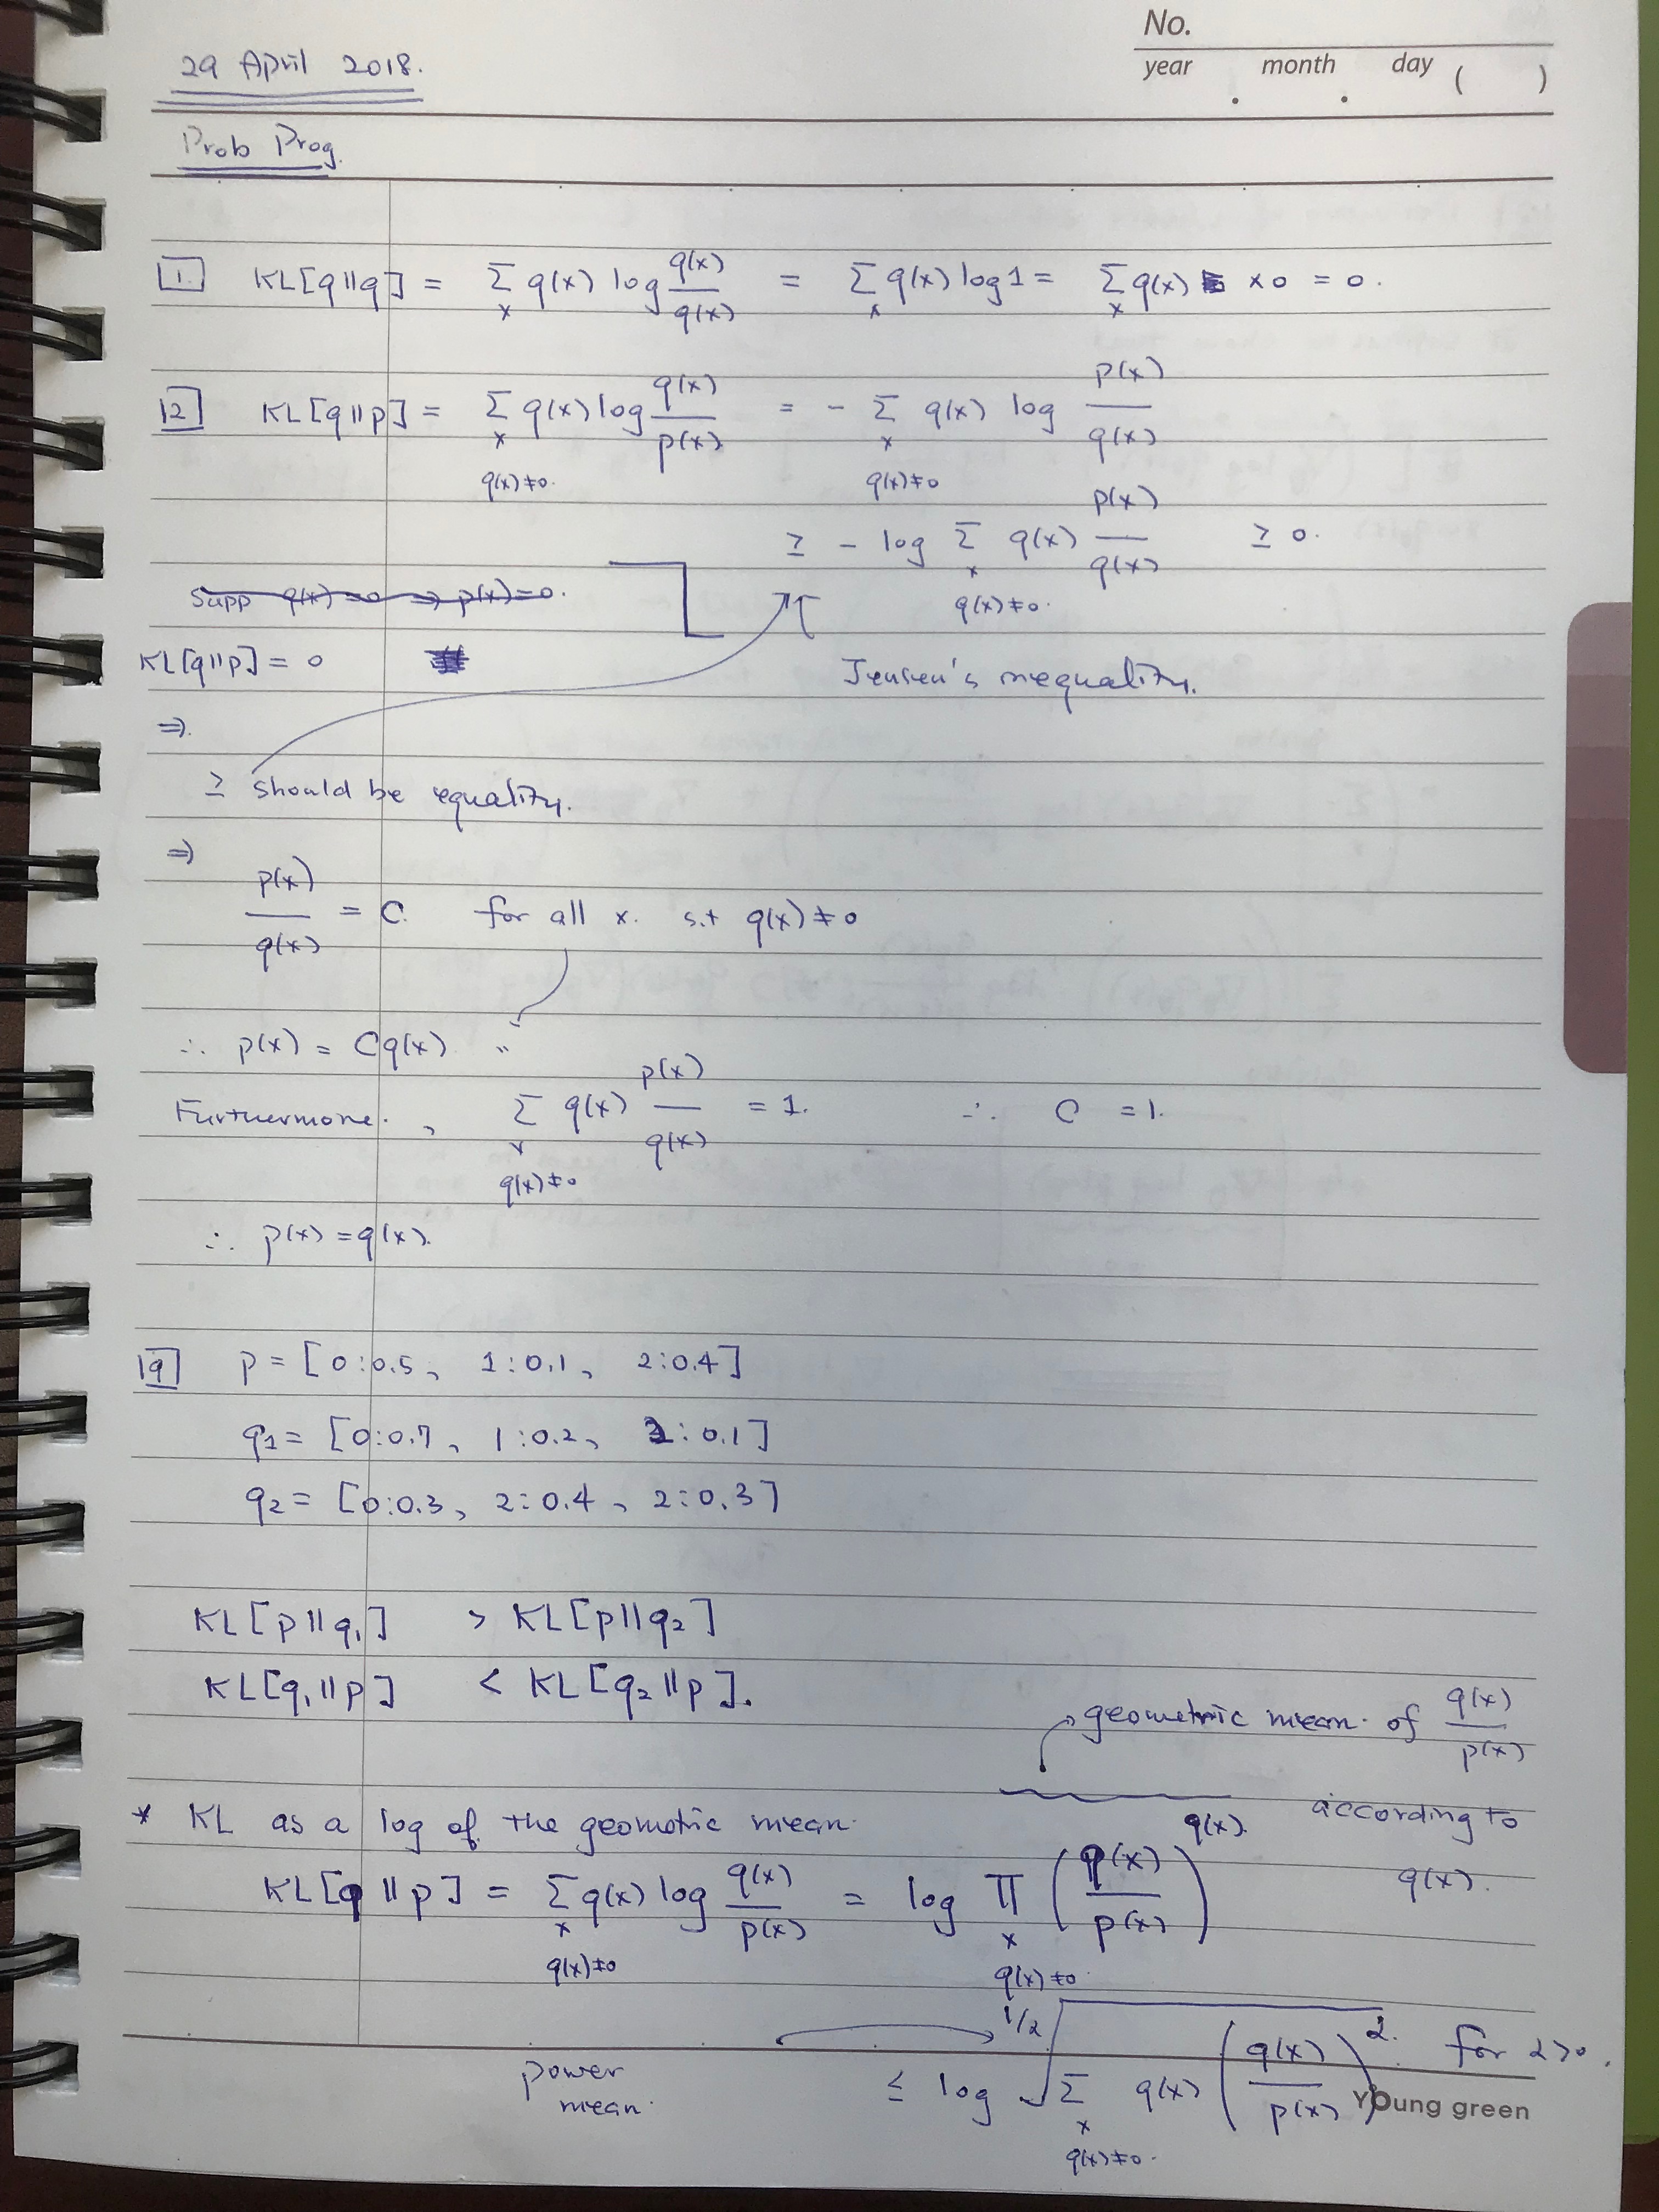 No.
year . month . day ( )
29 April 2018.
Prob Prog.
1. KL[q||q] = Σ_x q(x) log q(x)/q(x) = Σ_x q(x) log 1 = Σ_x q(x) × 0 = 0.
12 KL[q||p] = Σ_{x, q(x)≠0} q(x) log q(x)/p(x) = - Σ_{x, q(x)≠0} q(x) log p(x)/q(x)
≥ - log Σ_{x, q(x)≠0} q(x) p(x)/q(x) ≥ 0.
Supp q(x)=0 ⇒ p(x)=0.
Jensen's inequality.
KL[q||p] = 0
⇒
≥ should be equality.
⇒
p(x)/q(x) = C. for all x. s.t q(x)≠0
∴ p(x) = Cq(x) "
Furthermore, Σ_{x, q(x)≠0} q(x) p(x)/q(x) = 1. ∴ C = 1.
∴ p(x) = q(x).
19 p = [0:0.5, 1:0.1, 2:0.4]
q1 = [0:0.7, 1:0.2, 2:0.1]
q2 = [0:0.3, 2:0.4, 2:0.3]
KL[p||q1] > KL[p||q2]
KL[q1||p] < KL[q2||p].
geometric mean of q(x)/p(x)
according to
q(x).
* KL as a log of the geometric mean.
KL[q||p] = Σ_{x, q(x)≠0} q(x) log q(x)/p(x) = log Π_{x, q(x)≠0} (q(x)/p(x))^{q(x)}
power
mean.
≤ log 1/α√(Σ_{x, q(x)≠0} q(x) (q(x)/p(x))^α) for α>0.
Young green